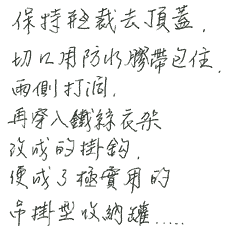 保特瓶裁去頂蓋,
切口用防水膠帶包住,
兩側打洞,
再穿入鐵絲衣架
改成的掛鈎,
便成了極實用的
吊掛型收納罐.....